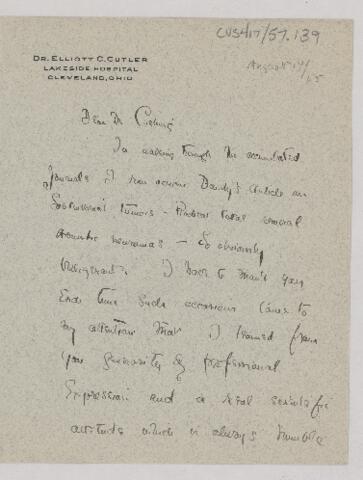 CUS417/57.139
DR. ELLIOTT C. CUTLER
LAKESIDE HOSPITAL
CLEVELAND, OHIO
August 14/
25
Dear Dr Cushing
In walking through the accumulated
Journals I ran across Dandy's article on
tumors - total removal
acoustic neuromas - So obviously
I have to thank you
Each time such occasions come to
my attention that I learned from
you generosity of professional
Expression and a real scientific
attitude which is always humble